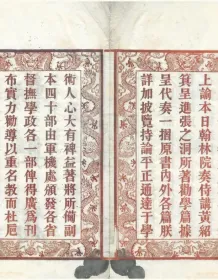 上諭本日翰林院奏侍講黃紹
箕呈進張之洞所著勸學篇據
呈代奏一摺原書內外各篇朕
詳加披覽持論平正通達于學
術人心大有裨益著將所備副
本四十部由軍機處頒發各省
督撫學政各一部俾得廣為刊
布實力勸導以重名教而杜卮